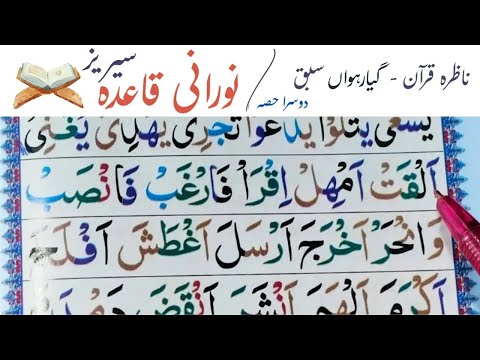 ناظرہ قرآن - گیارہواں سبق
دوسرا حصہ
نورانی قاعدہ سیریز
يَسْعٰى يَتْلُوْا يَدْعُوْا تَجْرِىْ يَهْدِىْ يُغْنِىْ
اَلْقَتْ اَمْهِلْ اِقْرَاْ فَارْغَبْ فَانْصَبْ
وَانْحَرْ اَخْرَجَ اَرْسَلَ اَغْطَشَ اَفْلَحَ
اَكْرَمَ اَلْهَمَ اَنْشَرَ اَنْقَضَ